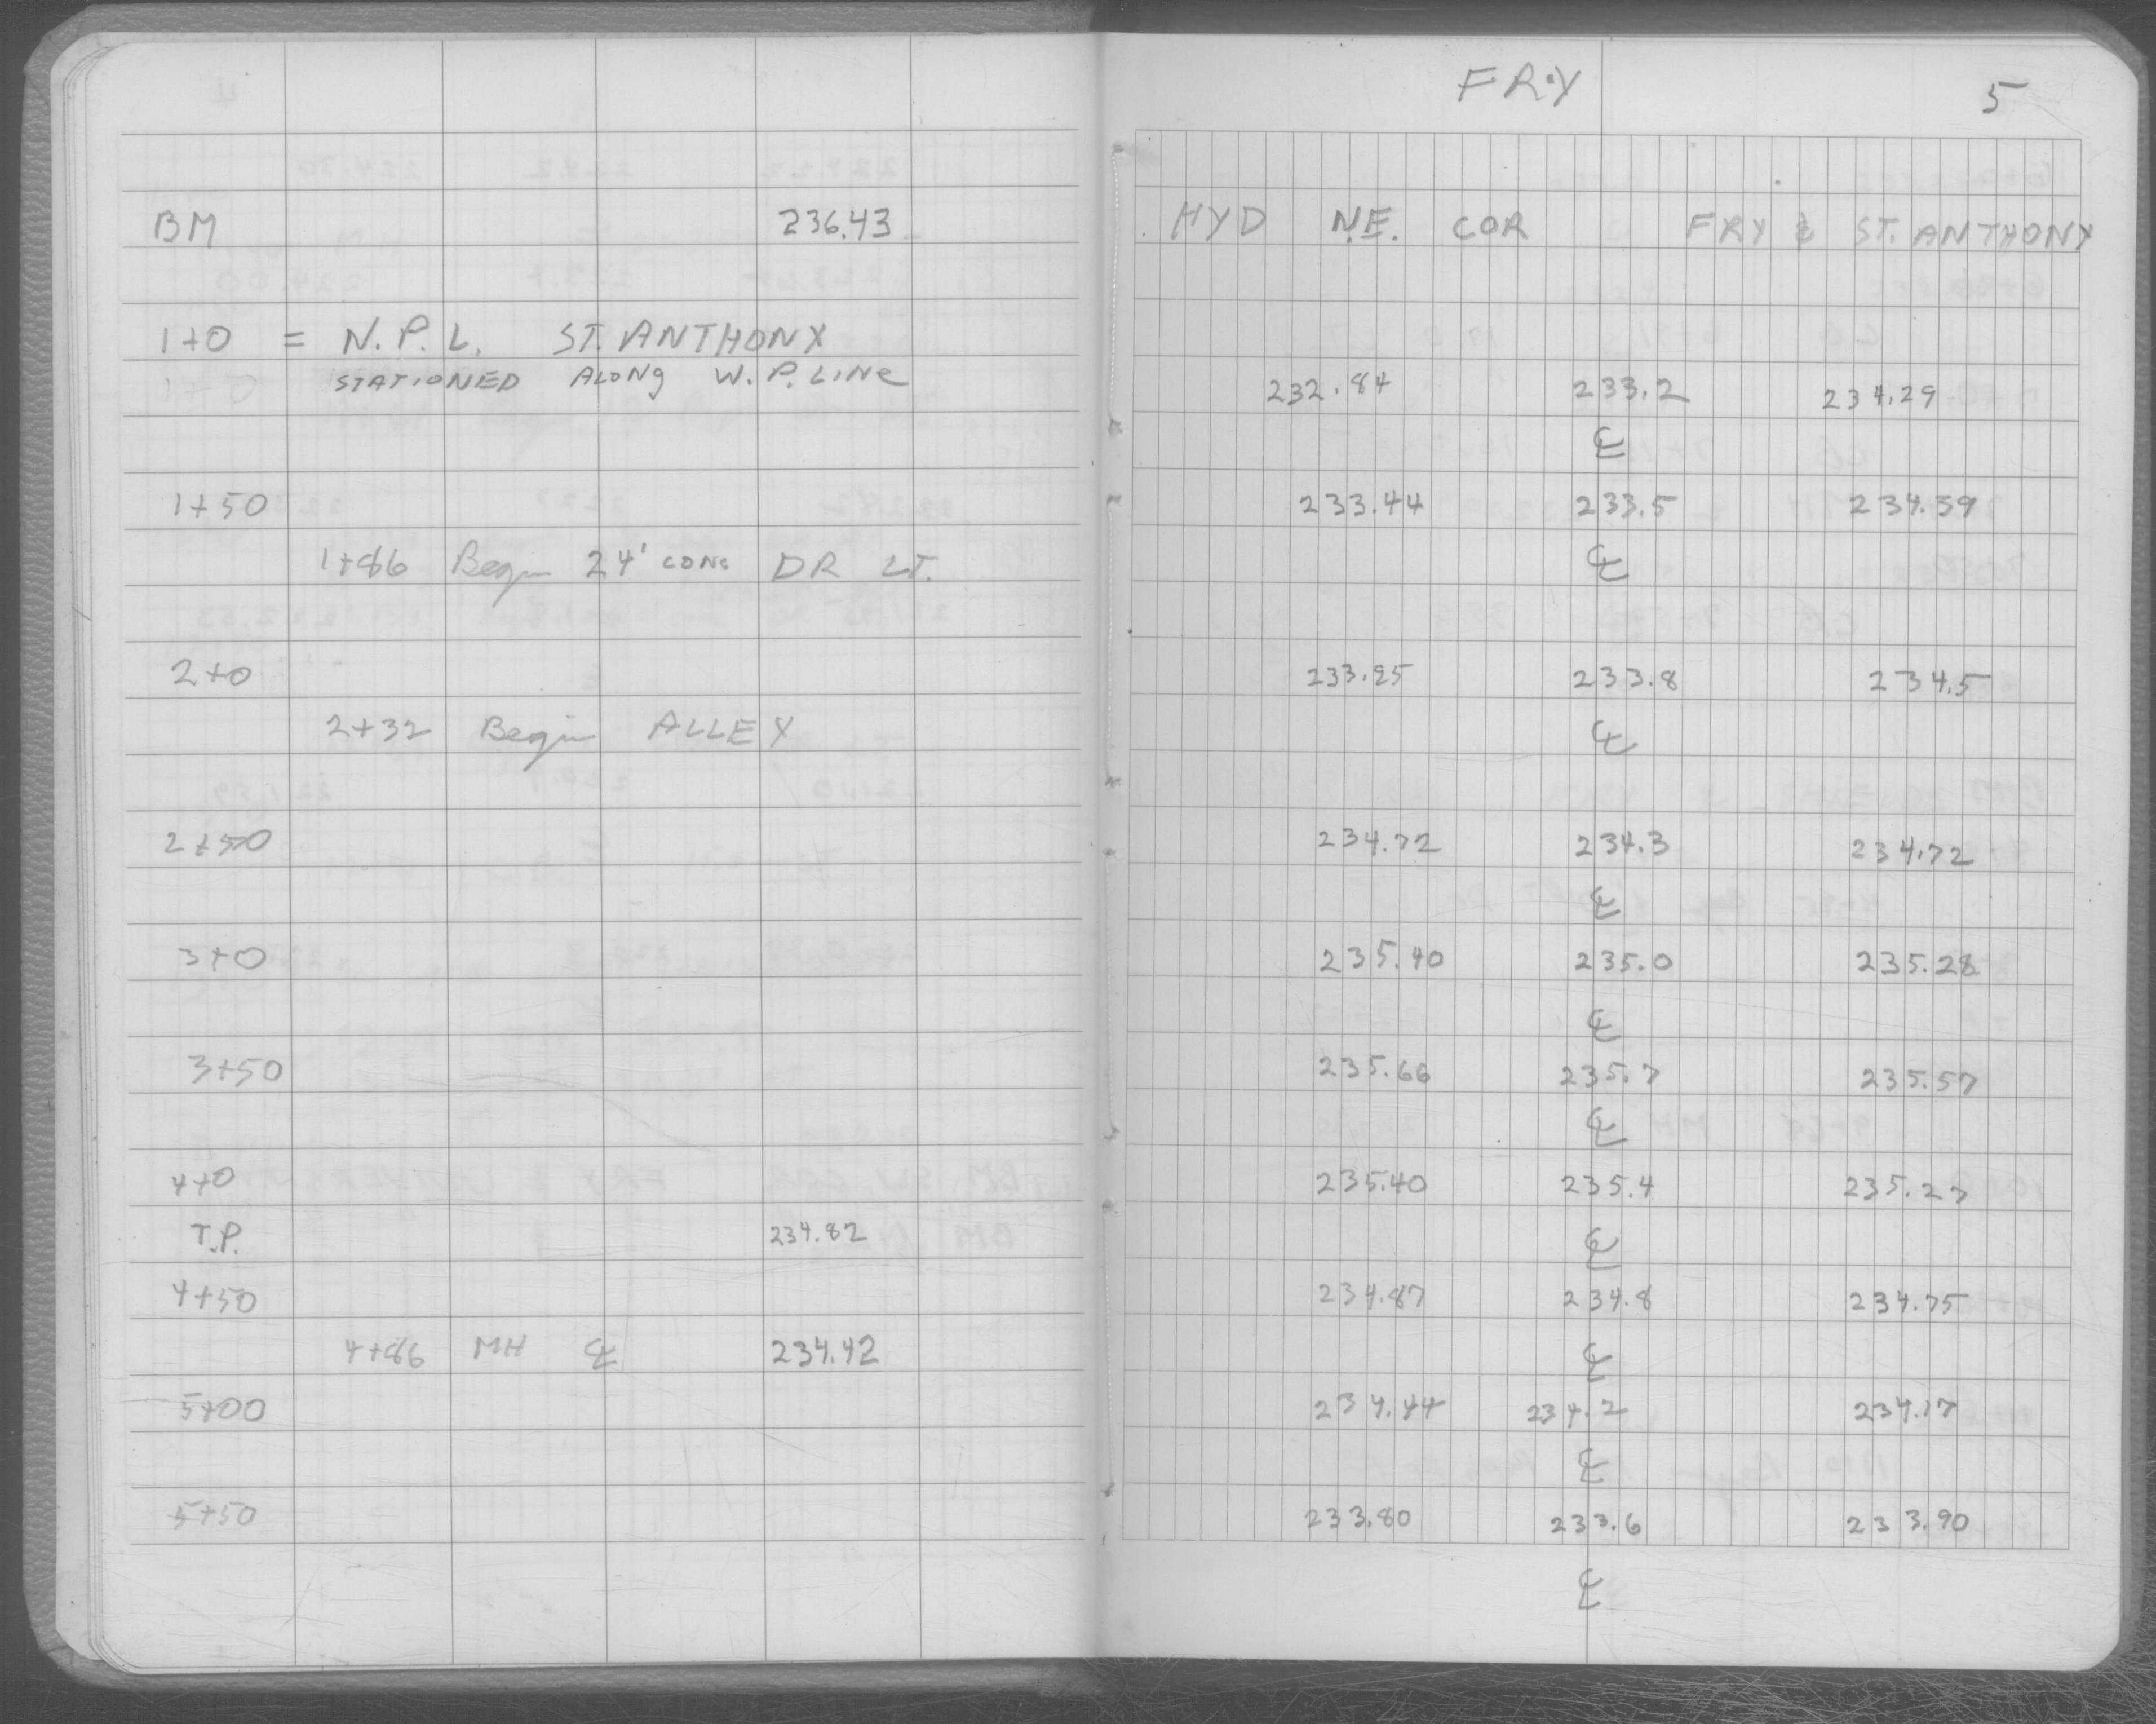 FRY 5
BM 236.43 HYD N.E. COR FRY & ST. ANTHONY
1+0 = N.P.L. ST. ANTHONY
STATIONED ALONG W.P. LINE 232.84 233.2 234.29
℄
1+50 233.44 233.5 234.39
1+86 Begin 24' CONC DR LT. ℄
2+0 233.95 233.8 234.5
2+32 Begin ALLEY ℄
2+50 234.72 234.3 234.72
℄
3+0 235.40 235.0 235.28
℄
3+50 235.66 235.7 235.57
℄
4+0 235.40 235.4 235.27
T.P. 234.82 ℄
4+50 234.87 234.8 234.75
4+86 MH ℄ 234.42 ℄
5+00 234.44 234.2 234.17
℄
5+50 233.80 233.6 233.90
℄